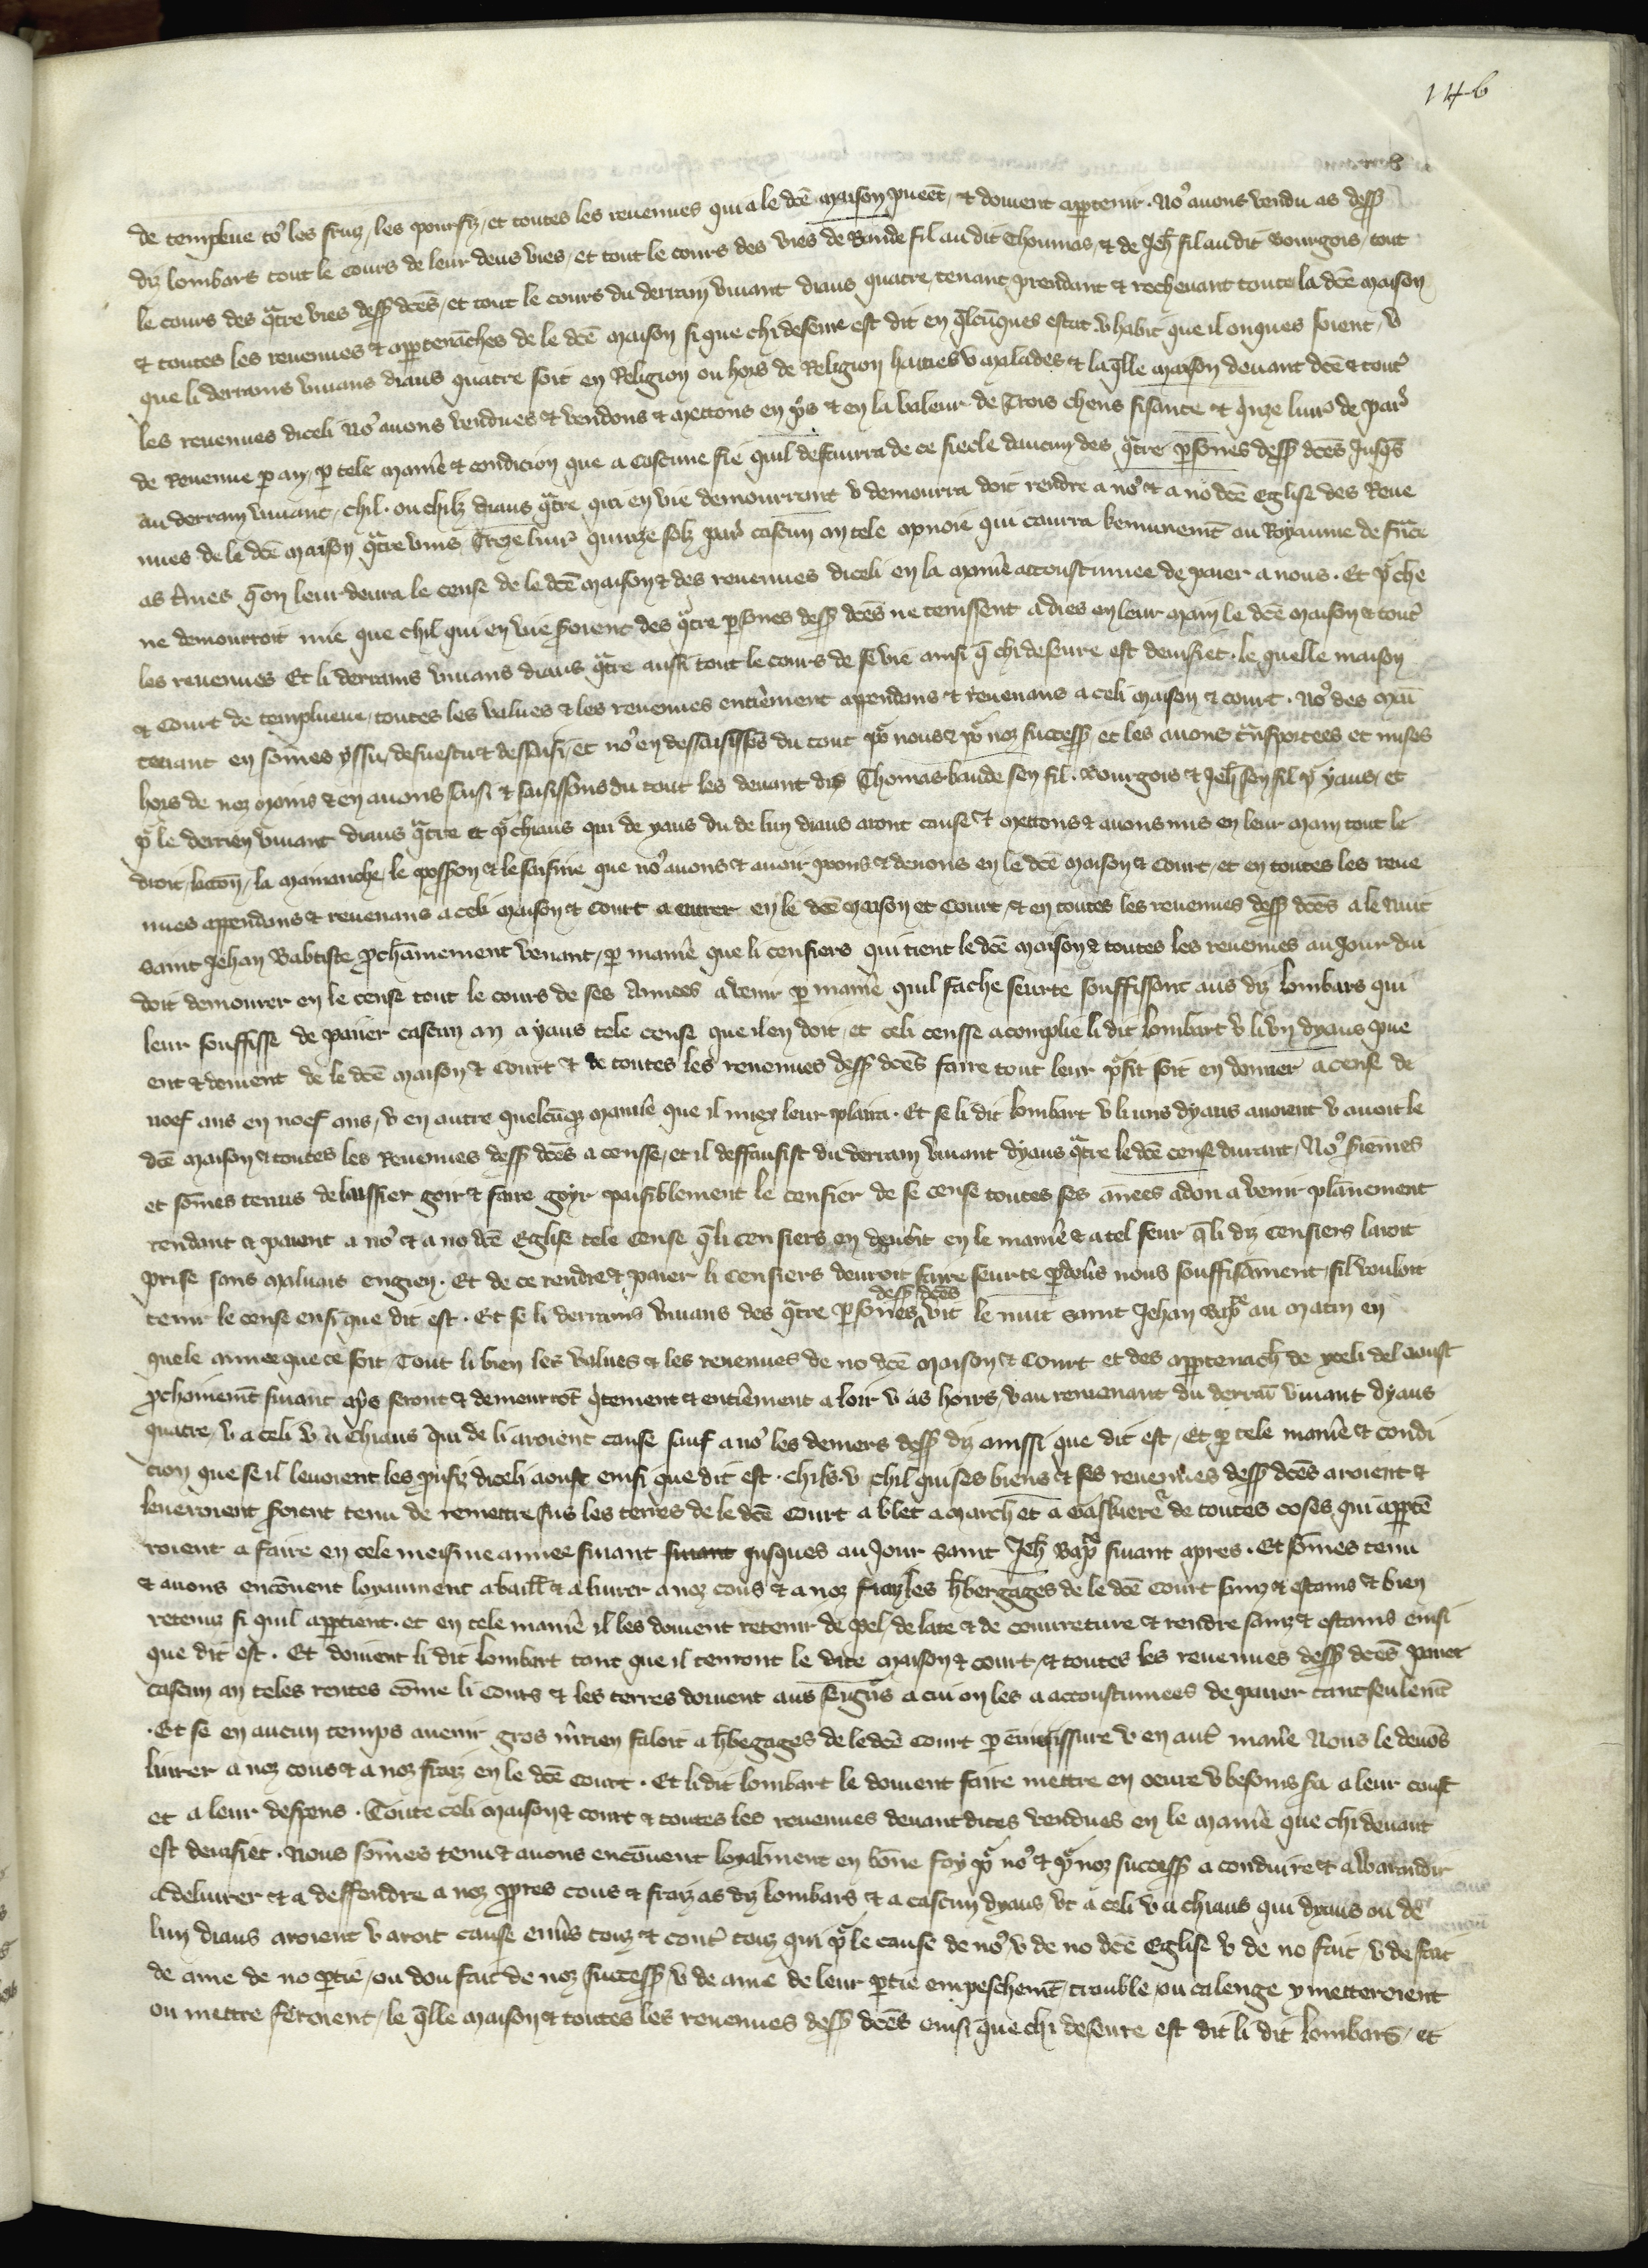 146
de templeue to9 les fruiz, les pourfiz, et toutes les reuenues qui a le dcē maison pueēt, & doiuent apptenir. No9 auons vendu as dess9
diz lombars tout le cours de leur deus vies, et tout le cours des vies de Baude fil au dit Thoumas, & de Jeh̄ fil au dit Bourgois, tout
le cours des qͣtre vies dess9 dcēs, et tout le cours du derrain viuant diaus quatre, tenant prendant & recheuant toute la dcē maison
& toutes les reuenues & appertenāches de le dcē maison si que chi deseure est dit en q̄lcūques estat v habit que il onques soient, v
que li derrains viuans diaus quatre soit en Religion ou hors de Religion haities v malades & laq̄lle maison deuant dcē & tout9
les reuenues diceli No9 auons vendues & vendons & mettons en pris & en la valeur de Trois chens sisante & qinze liur9 de par9
de Reuenue p an, p tele manie9 & condicion que a cascune fie quil desfaurra de ce siecle daucun des qͣtre psones dess9 dcēs Jusqs
au derrain viuant, chil. ou chilz diaus qͣtre qui en vie demourront v demourra doit rendre a no9 & a no dcē Eglise des Reue
nues de le dcē maison qͣtre vins Treze liur9 quinze solz par9 cascun an tele monoie qui courra kemunemt̄ ou Royaume de frāce
as t̄mes q̄ on leur deura le cense de le dcē maison & des reuenues diceli en la manie9 accoustumee de paier a nous. Et p9 che
ne demourroit mie que chil qui en vie seroient des qͣtre psones dess9 dcēs ne tenissent a dies en leur main le dcē maison & tout9
les reuenues Et li derrains viuans diaus qͣtre ausi tout le cours de se vie ainsi q̄ chi deseure est deuisiet. le quelle maison
& Court de templueue, toutes les values & les reuenues entieremēt appendans & reuenans a celi maison & court. No9 des main
tenant en sōmes yssu, desuestu & dessaisi, et no9 en dessaisissōs du tout po9 nous & po9 noz success9 et les auons trāsportees et mises
hors de noz mains & en auons saisi & saisissons du tout les deuant dis Thomas baude sen fil. Bourgois & Jeh̄ sen fil p9 yaus, et
p9 le derrien viuant diaus qͣtre et p9 chiaus qui de yaus ou de lun diaus aront cause & mettons & auons mis en leur main tout le
droit, laction, la mainanche, le possion & le saisine que no9 auons & auoir poons & deuons en le dcē maison & Court, et en toutes les reue
nues appendans & reuenans a celi maison & Court a entrer en le dcē maison et Court, & en toutes les reuenues dess9 dcēs a le nuit
saint Jehan Babtiste pchainnement venant, p manie9 que li censiers qui tient le dcē maison & toutes les reuenues au Jour dui
doit demourer en le cense tout le cours de ses Annees a venir p manie9 quil fache seurte souffissant aus diz lombars qui
leur souffisse de paiier cascun an a yaus tele cense que il en doit, et celi censse acomplie li dit lombart v li vn dyaus pue
ent & doiuent de le dcē maison & Court & de toutes les reuenues dess9 dcēs faire tout leur pfit soit en donner a cense de
noef ans en noef ans, v en autre quelcūqz manie9 que il miex leur plaira. Et se li dit lombart v li uns dyaus auoient v auoit le
dcē maison & toutes les Reuenues dess9 dcēs a censse, et il deffausist du derrain viuant dyaus qͣtre le dcē cense durant, No9 seriemes
et sōmes tenus de laissier goir & faire goyr paisiblement le censier de se cense toutes ses annees adon a venir plainnement
rendant & paiant a no9 & a no dcē Eglise tele cense q̄ li censiers en deuroit en le manie9 & a tel feur q̄ li diz censiers laroit
prise sans maluais engien. Et de ce rendre & paier li censiers deuroit faire seurte pdeuers nous souffisāment, sil vouloit
tenir le cense ensi que dit est. Et se li derrains viuans des qͣtre psones dess9 dcēs vit le nuit saint Jehan bapte au matin en
quele annee que ce soit Tout li bien les values & les reuenues de no dcē maison & Court et des apptenāch de yceli del aoust
pchainemt̄ siuant apres seront & demeurrōt qitement & entieremēt a loir v as hoirs, v au remenant du derrain viuant dyaus
quatre, v a celi v a chiaus qui de li aroient cause sauf a no9 les deniers dess9 diz ainssi que dit est, Et p tele manie9 & condi
cion que se il leuoient les pourfiz diceli aoust ensi que dit est. chils. v chil qui ses biens & ses reuenues dess9 dcēs aroient &
leueroient seroient tenu de remettre sus les terres de le dcē Court a blet a march et a Gaskiere9 de toutes coses qui apptē
roient a faire en cele meisme annee siuant siuant jusques au Jour saint Jeh̄ bapte siuant apres. Et sōmes tenu
& auons encōuent loyaument a baill9 & a liurer a noz cous & a noz fraiz les h̄bergages de le dcē Court sains & estains & bien
retenuz si quil apptient. et en tele manie9 il les doiuent retenir de pel, de late & de couureture & rendre sainz & estains ensi
que dit est. Et doiuent li dit lombart tant que il tenront le dite maison & court, & toutes les reuenues dess9 dcēs paier
cascun an teles rentes cōme li Cours & les terres doiuent aus seignrs a cui on les a accoustumees de paiier tant seulemt̄
. Et se en aucun temps auenir gros mrien faloit a h̄begages de le dcē Court p enuiessissure v en autre manie9 Nous le deuōs
liurer a noz cous & a noz fraiz en le dcē Court. Et li dit lombart le doiuent faire mettre en oeuure v besoins sera a leur coust
et a leur despens. Toute celi maison & court & toutes les reuenues deuant dites vendues en le manie9 que chi deuant
est deuisiet. Nous sōmes tenu & auons encōuent loyalment en bōne foy po9 no9 & po9 noz success9 a conduire & a warandir
a deliurer & a deffendre a noz pprres cous & fraiz as diz lombars & a cascun dyaus et a celi v a chiaus qui dyaus ou de
lun diaus aroient v aroit cause enuers touz & contre touz qui p9 le cause de no9 v de no dcē Eglise v de no fait v de fait
de ame de no ptie, ou dou fait de noz success9, v de ame de leur ptie empeschemt̄, trouble, ou calenge y metteroient
ou mettre feroient, le q̄lle maison & toutes les reuenues dess9 dcēs ensi que chi deseure est dit li dit lombars, et